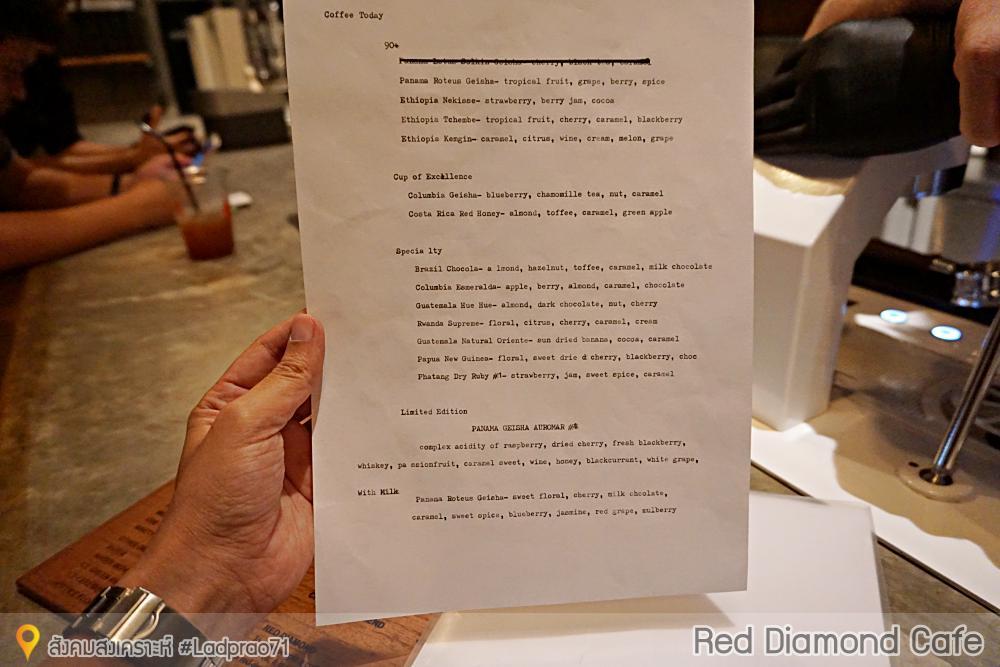 Coffee Today
90+
Panama Lotus Solkin Geisha- cherry, black tea, caramel
Panama Roteus Geisha- tropical fruit, grape, berry, spice
Ethiopia Nekisse- strawberry, berry jam, cocoa
Ethiopia Tchembe- tropical fruit, cherry, caramel, blackberry
Ethiopia Kemgin- caramel, citrus, wine, cream, melon, grape
Cup of Excellence
Columbia Geisha- blueberry, chamomille tea, nut, caramel
Costa Rica Red Honey- almond, toffee, caramel, green apple
Specia lty
Brazil Chocola- a lmond, hazelnut, toffee, caramel, milk chocolate
Columbia Esmeralda- apple, berry, almond, caramel, chocolate
Guatemala Hue Hue- almond, dark chocolate, nut, cherry
Rwanda Supreme- floral, citrus, cherry, caramel, cream
Guatemala Natural Oriente- sun dried banana, cocoa, caramel
Papua New Guinea- floral, sweet drie d cherry, blackberry, choc
Phatang Dry Ruby #1- strawberry, jam, sweet spice, caramel
Limited Edition
PANAMA GEISHA AUROMAR #4
complex acidity of raspberry, dried cherry, fresh blackberry,
whiskey, pa ssionfruit, caramel sweet, wine, honey, blackcurrant, white grape,
With Milk
Panama Roteus Geisha- sweet floral, cherry, milk chcolate,
caramel, sweet spice, blueberry, jasmine, red grape, mulberry
สังคมสงเคราะห์ #Ladprao71
Red Diamond Cafe